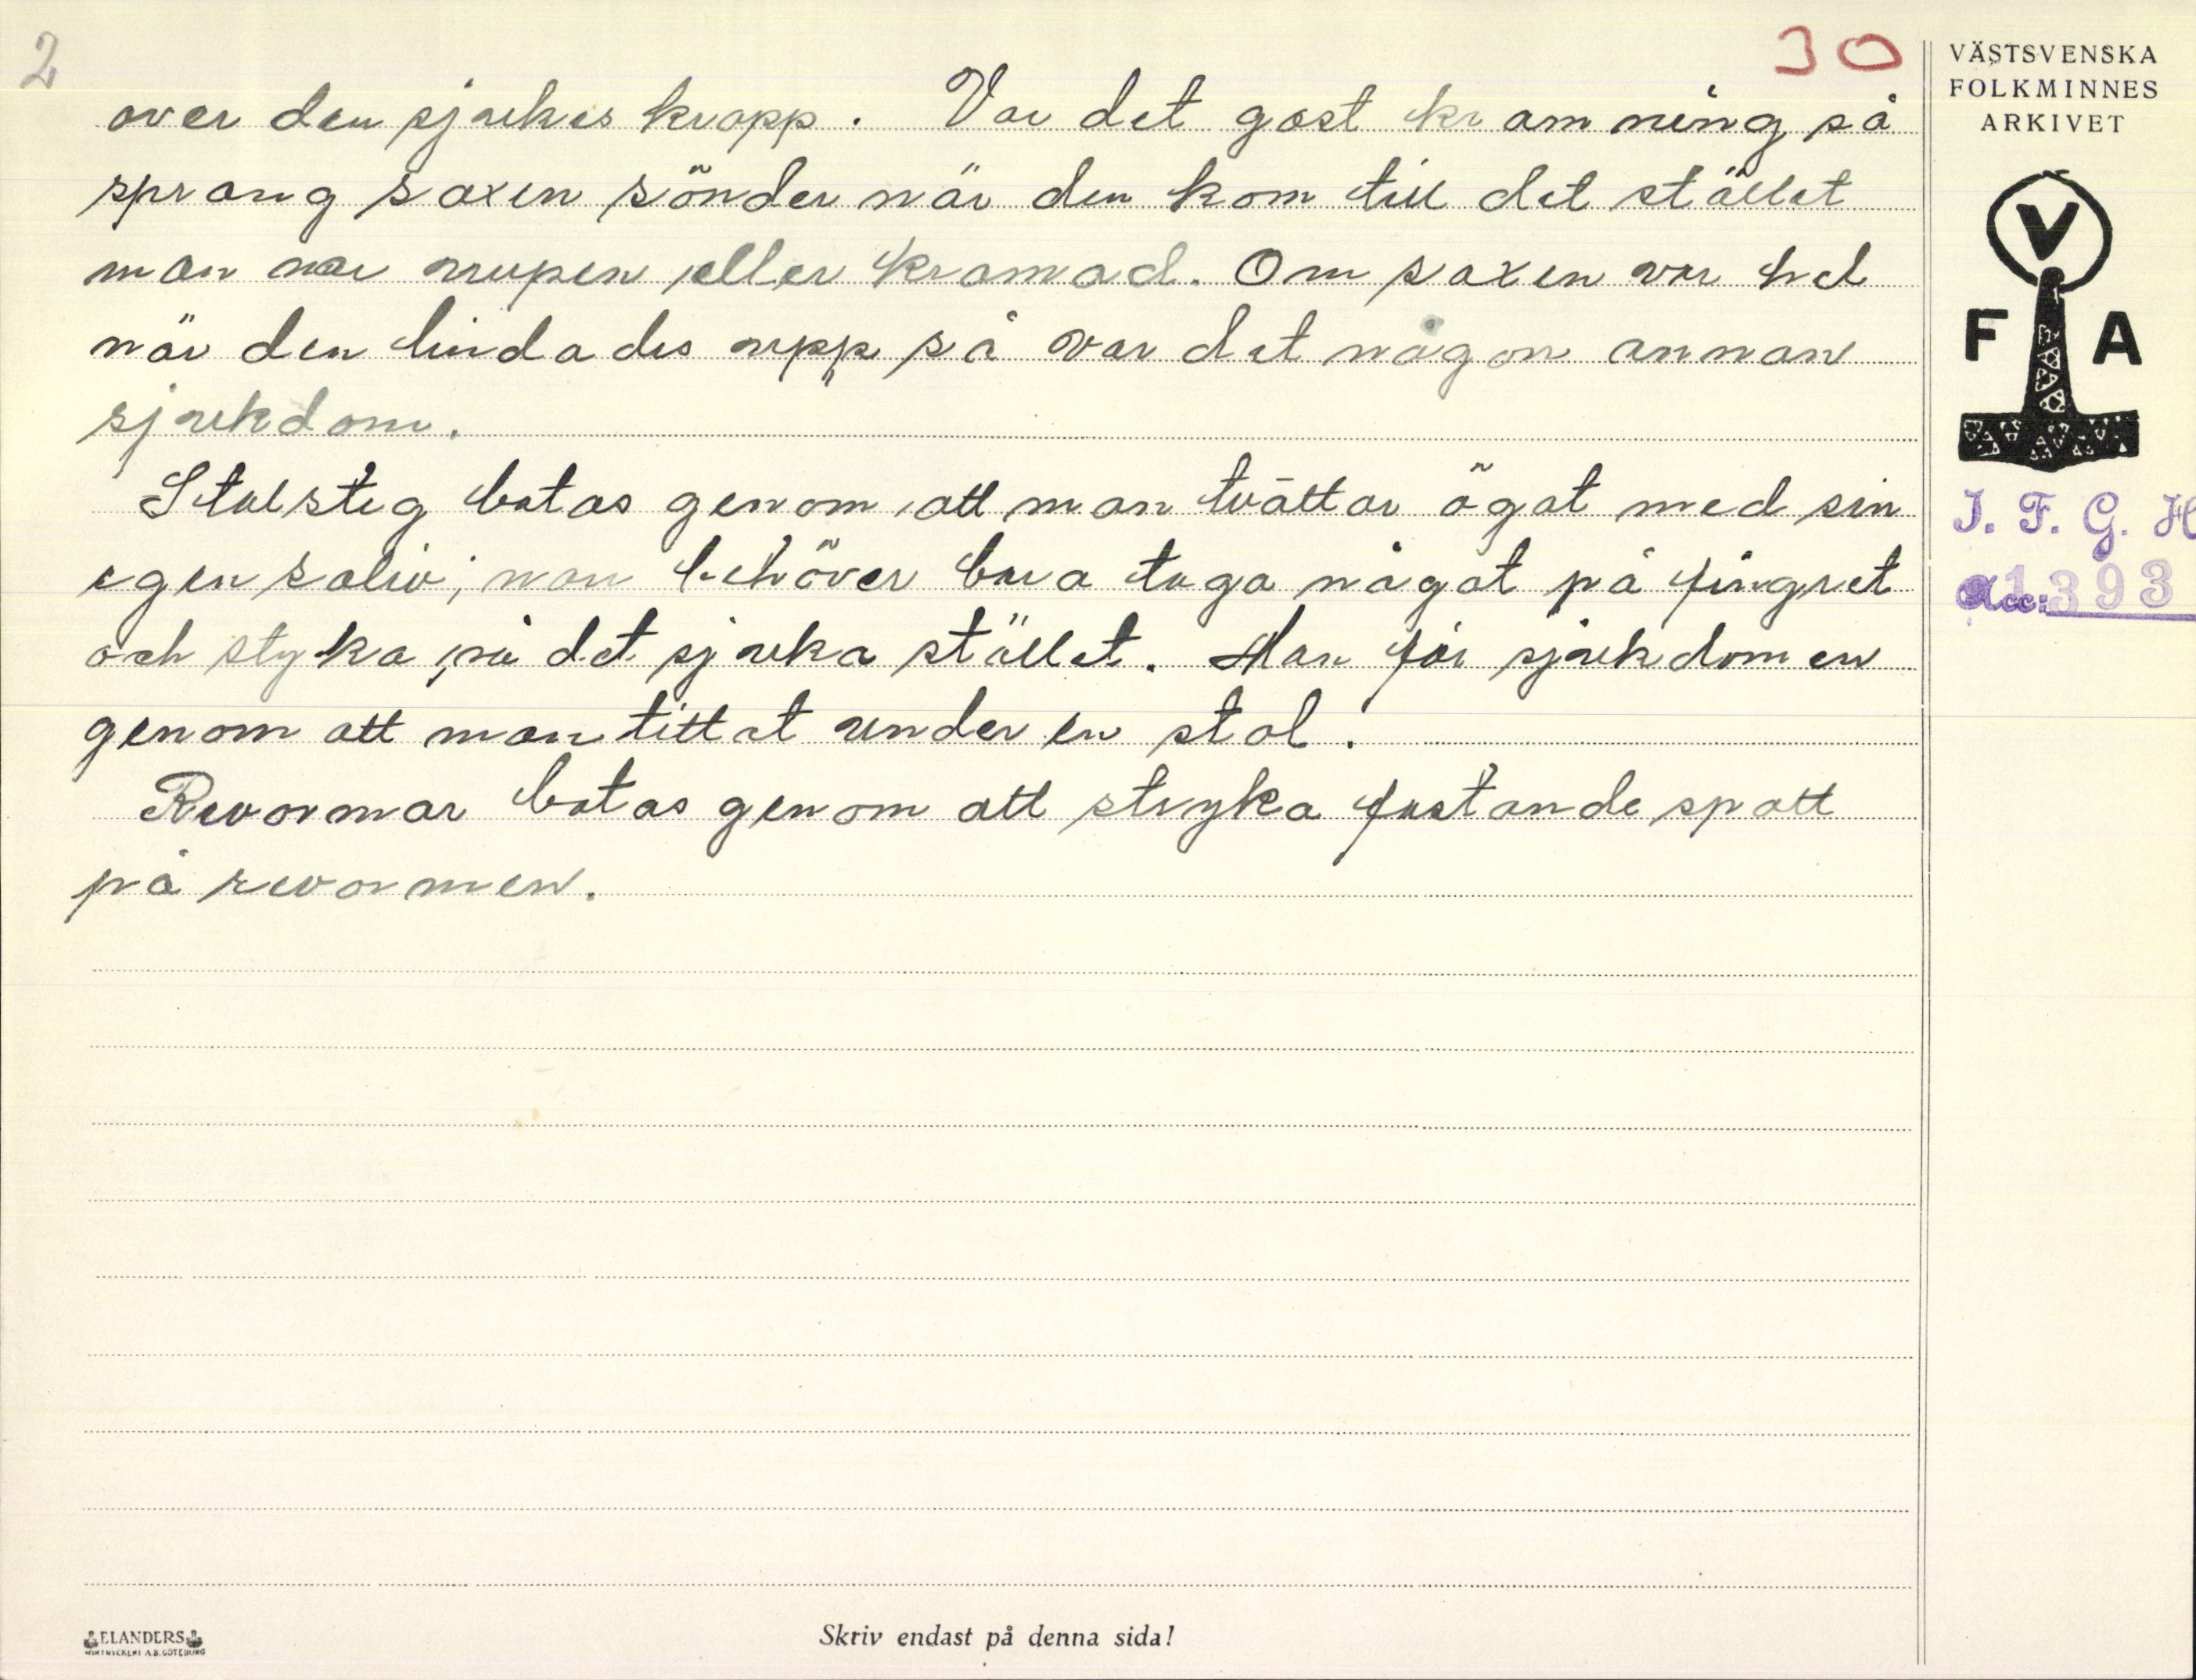 2
30
över den sjukes kropp. Var det gast kramning så
sprang saxen sönder när den kom till det stället
man var nupen eller kramad. Om saxen var hel
när den lindades upp så var det någon annan
sjukdom.
Stolsteg botas genom att man tvättar ögat med sin
egen saliv; man behöver bara taga något på fingret
och styka på det sjuka stället. Man får sjukdomen
genom att man tittat under en stol.
Revormar botas genom att stryka fastande spott
på revormen.
VÄSTSVENSKA
FOLKMINNES
ARKIVET
V
F A
I. F. G. H
Acc: 1393
ELANDERS
BOKTRYCKERI A.B. GÖTEBORG
Skriv endast på denna sida!